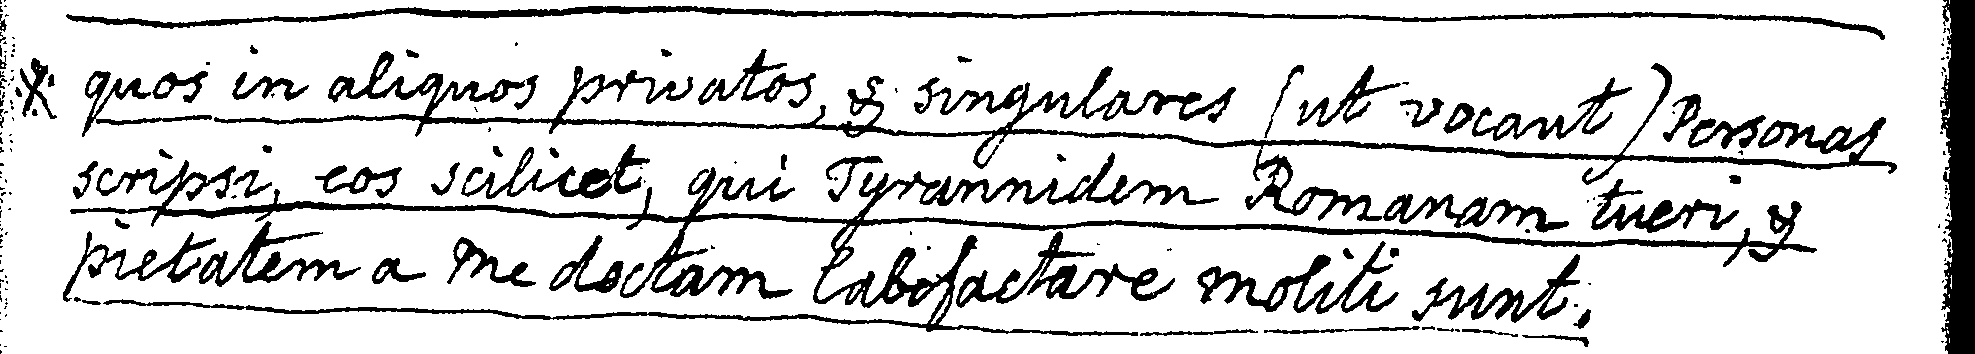 ※ quos in aliquos privatos, & singulares (ut vocant) Personas
scripsi, eos scilicet, qui Tyrannidem Romanam tueri, &
pietatem a me doctam labefactare moliti sunt.